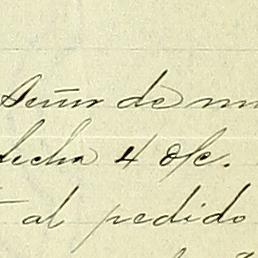 Señor de
fecha 4 d/c.
al pedido